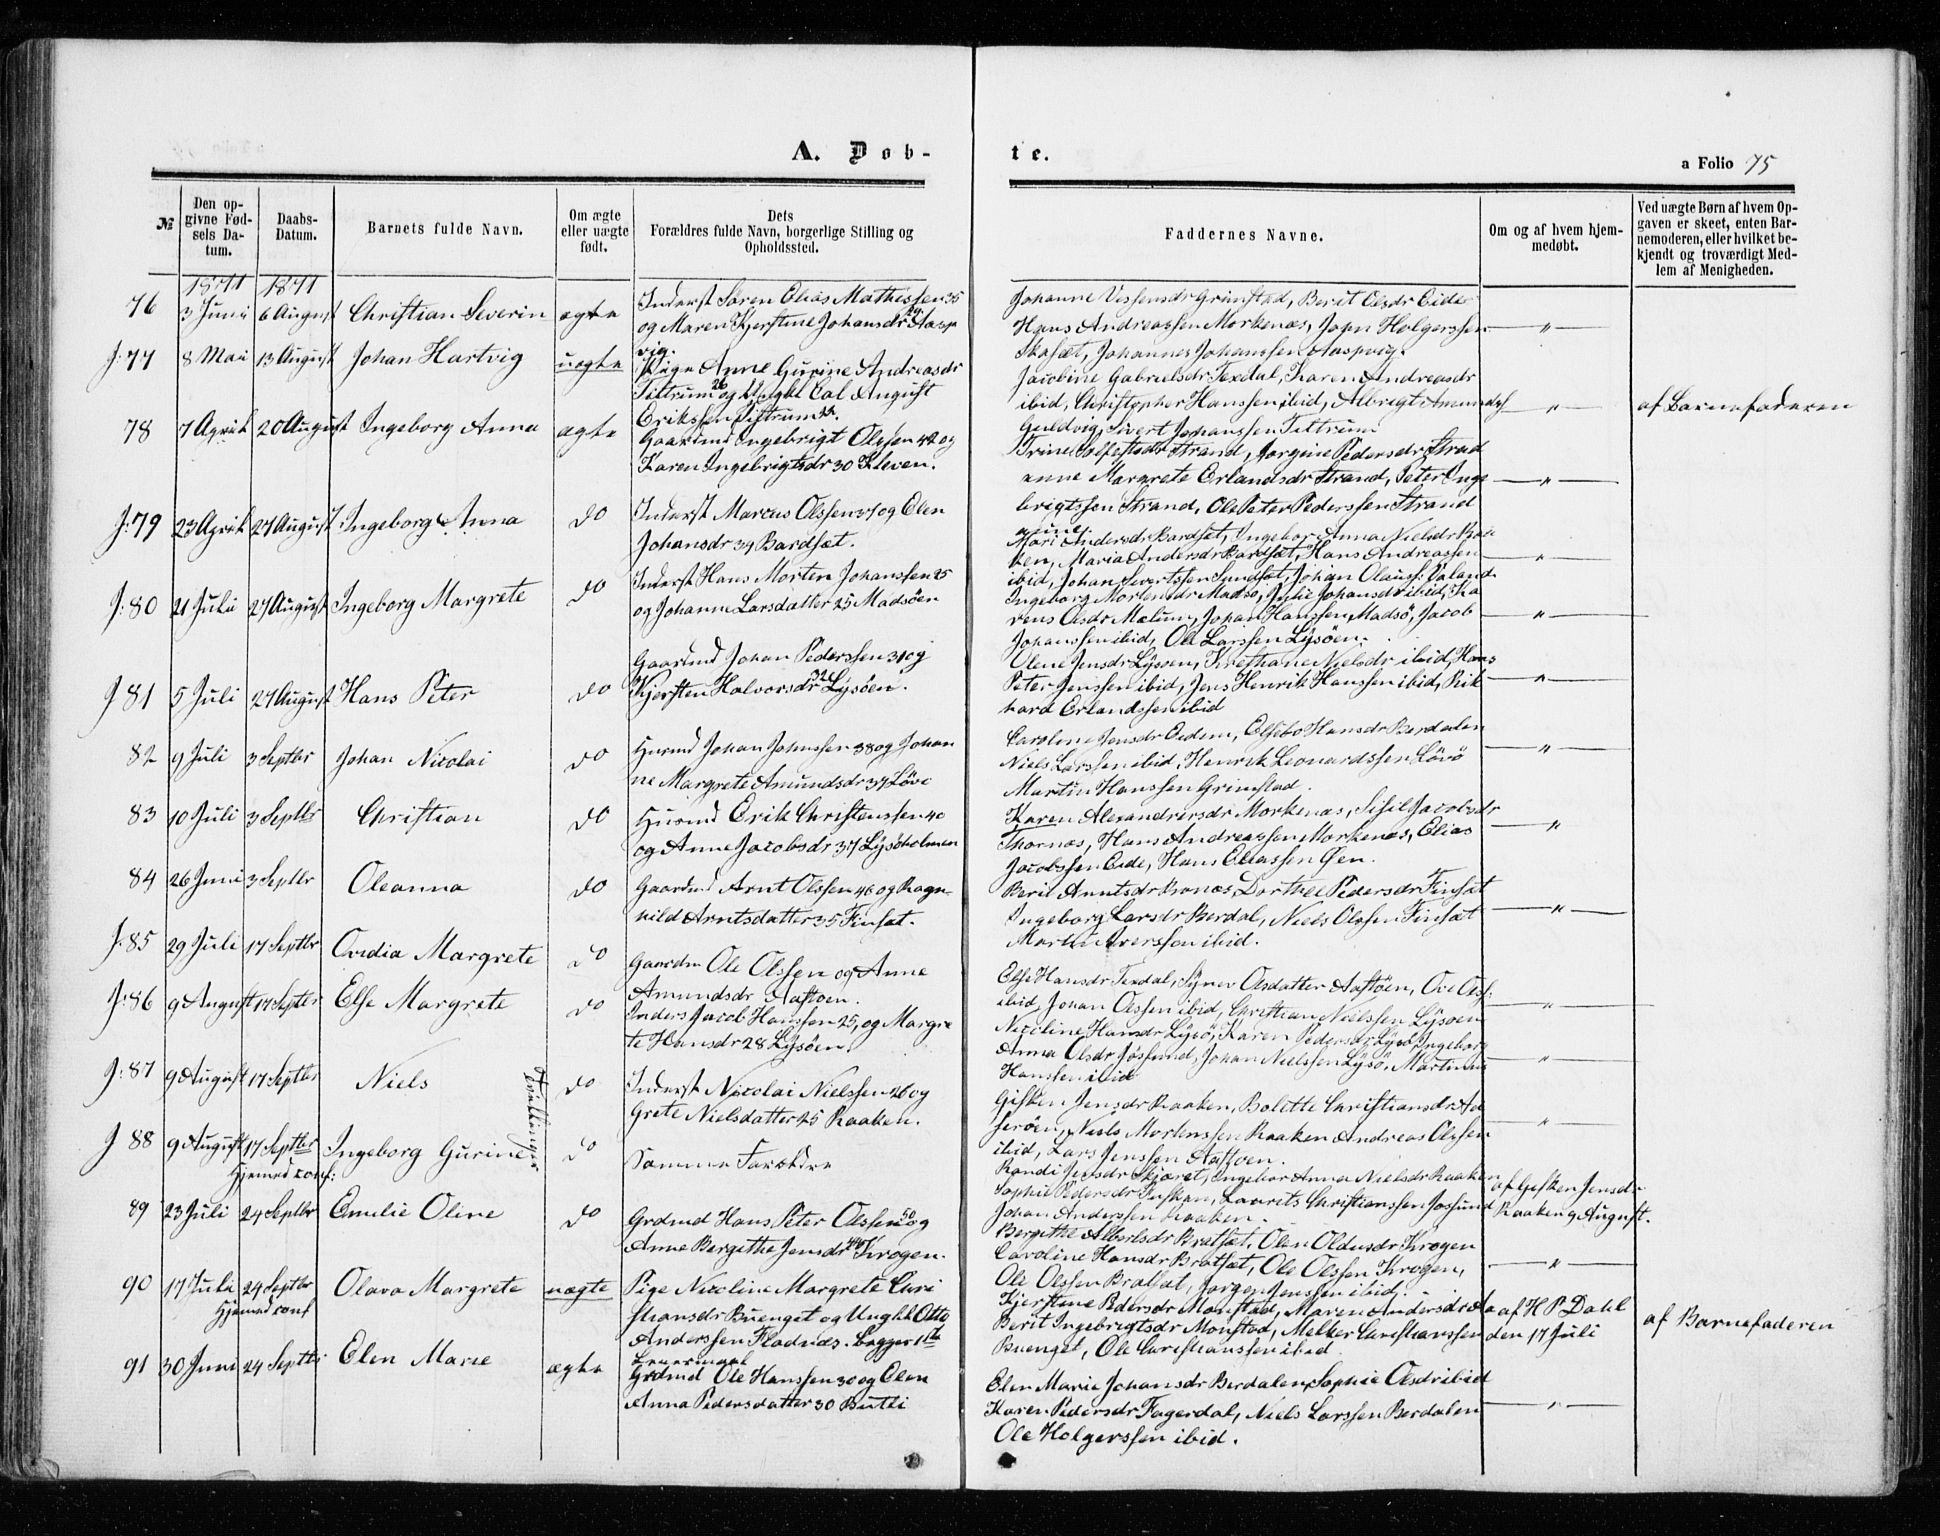 A. Døb-
te.
a Folio 75
№
Den opgivne Fødsels Datum.
Daabs-Datum.
Barnets fulde Navn.
Om ægte eller uægte født.
Dets Forældres fulde Navn, borgerlige Stilling og Opholdssted.
Faddernes Navne.
Om og af hvem hjemmedøbt.
Ved uægte Børn af hvem Opgaven er skeet, enten Barnemoderen, eller hvilket bekjendt og troværdigt Medlem af Menigheden.
1871 1871
76 3 Juni 6 August Christian Severin ægte
Inderst Søren Elias Mathissen 35
og Maren Kjerstine Johansdr Aasp
vig.
Johanne Grimstad, Berit Olsdr Eide
Hans Andreassen Morkenæs, John Holgerssen
Skasæt, Johannes Johanssen Aaspvig.
— " —
J: 77 8 Mai 13 August Johan Hartvig uægte
Pige Anne Gurine Andreasdr
Tiltrum 26 og Ungkl Carl August
Erikssen Tiltrum
Jacobine Gabrielsdr Texdal, Karen Andreasdr
ibid, Christopher Hanssen ibid, Albrigt
Sivert Johanssen Tiltrum
— " —
af Barnefaderen
78 7 April 20 August Ingeborg Anna ægte
Gaardmd Ingebrigt Olssen 42 og
Karen Ingebrigtsdr 30 Kleven.
Trine Strand, Jørgine Pedersdr Strand
anne Margrete Erlandsdr Strand, Peter Inge
brigtssen Strand, Ole Peter Pederssen Strand
— " —
J: 79 23 April 27 August Ingeborg Anna do
Inderst Marcus Olssen 37 og Elen
Johansdr 39 Bardsæt.
Mari Andersdr Bardsæt, Ingebor Anna Nielsdr Raa
ken, Maria Andersdr Bardsæt, Hans Andreassen
ibid, Johan Sivertssen Sundsæt, Johan
— " —
J: 80 21 Juli 27 August Ingeborg Margrete do
Inderst Hans Morten Johanssen 25
og Johanne Larsdatter 25 Madsøen
Ingeborg Mortensdr Madsø, Julie Johansdr ibid, Ka
rens Olsdr Mælum, Johan Hanssen Madsø, Jacob
Johanssen ibid, Ole Larssen Lysøen.
— " —
J 81 5 Juli 27 August Hans Peter do
Gaardmd Johan Pederssen 31 og
Kjersten Halvorsdr 32 Lysøen.
Olene Jensdr Lysøen, Kristiane Nielsdr ibid, Hans
Peter Jenssen ibid, Jens Henrik Hanssen ibid, Rik
hard Erlandssen ibid
— " —
82 9 Juli 3 Septbr Johan Nicolai do
Husmd Johan Johnssen 38 og Johan
ne Margrete Amundsdr 37 Løvø
Caroline Jensdr Oedem, Elsebo Hansdr Berdalen
Niels Larssen ibid, Henrik Leonardssen Løvø
Martin Hanssen Grimstad.
— " —
83 10 Juli 3 Septbr Christian do
Husmd Erik Christenssen 40
og Anne Jacobsdr 37 Lysøholmen
Karen Alexandersdr Morkenæs, Sisil Jacobsdr
Thornæs, Hans Andreassen Morkenæs, Elias
Jacobssen Eide, Hans Eliassen Øen.
— " —
84 26 Juni 3 Septbr Oleanna do
Gaardmd Arnt Olssen 46 og Ragn-
hild Arntsdatter 35 Finsæt.
Berit Arntsdr Dorthee Pedersdr Finsæt
Ingeborg Larsdr Berdal, Niels Olssen Finsæt
Martin Iverssen ibid.
— " —
J: 85 29 Juli 17 Septbr Ovidia Margrete do
Gaardm Ole Olssen og Anne
Amundsdr Aaftøen.
Else Hansdr Texdal, Synev Olsdatter Aaftøen, Ove Olss:
ibid, Johan Olssen ibid, Christian Nielssen Lysøen
— " —
J: 86 9 August 17 Septbr Else Margrete do
Inders Jacob Hanssen 25, og Margre
te Hansdr 28 Lysøen.
Nicoline Hansdr Lysø, Karen Pedersdr Lysø, Ingeborg
Anna Olsdr Jøssund, Johan Nielssen Lysø, Martinus
Hanssen ibid
— " —
J: 87 9 August 17 Septbr Niels Tvillinger do
Inderst Nicolai Nielssen 26 og
Grete Nielsdatter 25 Raaken.
Gisken Jensdr Raaken, Bolette Christiansdr As
serøen, Niels Mortenssen Raaken Andreas Olssen
ibid, Lars Jenssen Aaftøen.
— " —
J 88 9 August 17 Septbr Ingeborg Gurine do
Hjemmed conf:
Samme Forældre
Randi Jensdr Skjæret, Ingebor Anna Nielsdr Raaken
Sophie Pedersdr Laurits Christianssen Jøssund
Johan Anderssen Raaken.
af Gisken Jensdr
Raaken 9 August.
89 23 Juli 24 Septbr Emelie Oline do
Grdmd Hans Peter Olssen 50 og
Anne Bergithe Jensdr 44 Krogen.
Bergithe Albertsdr Bratsæt, Olen Oldusdr Krogen
Caroline Hansdr Bratsæt, Ole Olssen Krogen,
Ole Olssen Bratsæt, Jørgen Jenssen ibid.
— " —
90 17 Juli 24 Septbr Olava Margrete uægte
Hjemmed conf
Pige Nicoline Margrete Chri
stiansdr Buenget og Ungkl Otto
Anderssen Fladnæs. Begges 1ste
Leiermaal
Kjerstine Pedersdr Monstad, Maren Andersdr
Berit Ingebrigtsdr Monstad, Melker Christianssen
Buenget, Ole Christianssen ibid.
af H P Dahl
den 17 Juli
af Barnefaderen
91 30 Juni 24 Septbr Elen Marie ægte
Grdmd Ole Hanssen 30 og Elen
Anna Pedersdatter 30 Butli
Elen Marie Johansdr Berdalen, Sophie Olsdr ibid
Karen Pedersdr Fagerdal, Niels Larssen Berdalen
Ole Holgerssen ibid.
— " —